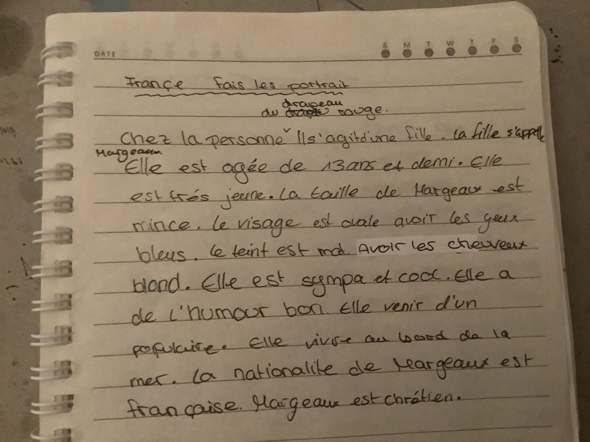 DATE S M T W T F S
Françe fais les portrait
drapeau
du rouge.
Chez la personne Il s'agit d'une fille. La fille s'appelle
Margeaux
Elle est agée de 13 ans et demi. Elle
est trés jeune. La taille de Margeaux est
mince. Le visage est ovale avoir les yeux
bleus. Le teint est mat Avoir les cheuveux
blond. Elle est sympa et cool. Elle a
de l'humour bon. Elle venir d'un
populaire. Elle vivre au bord de la
mer. La nationalite de Margeaux est
française. Margeaux est chrétien.